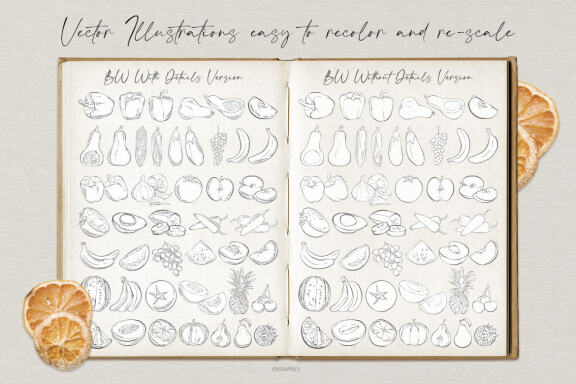 Vector Illustrations easy to recolor and re-scale
BW With Details Version
BW Without Details Version